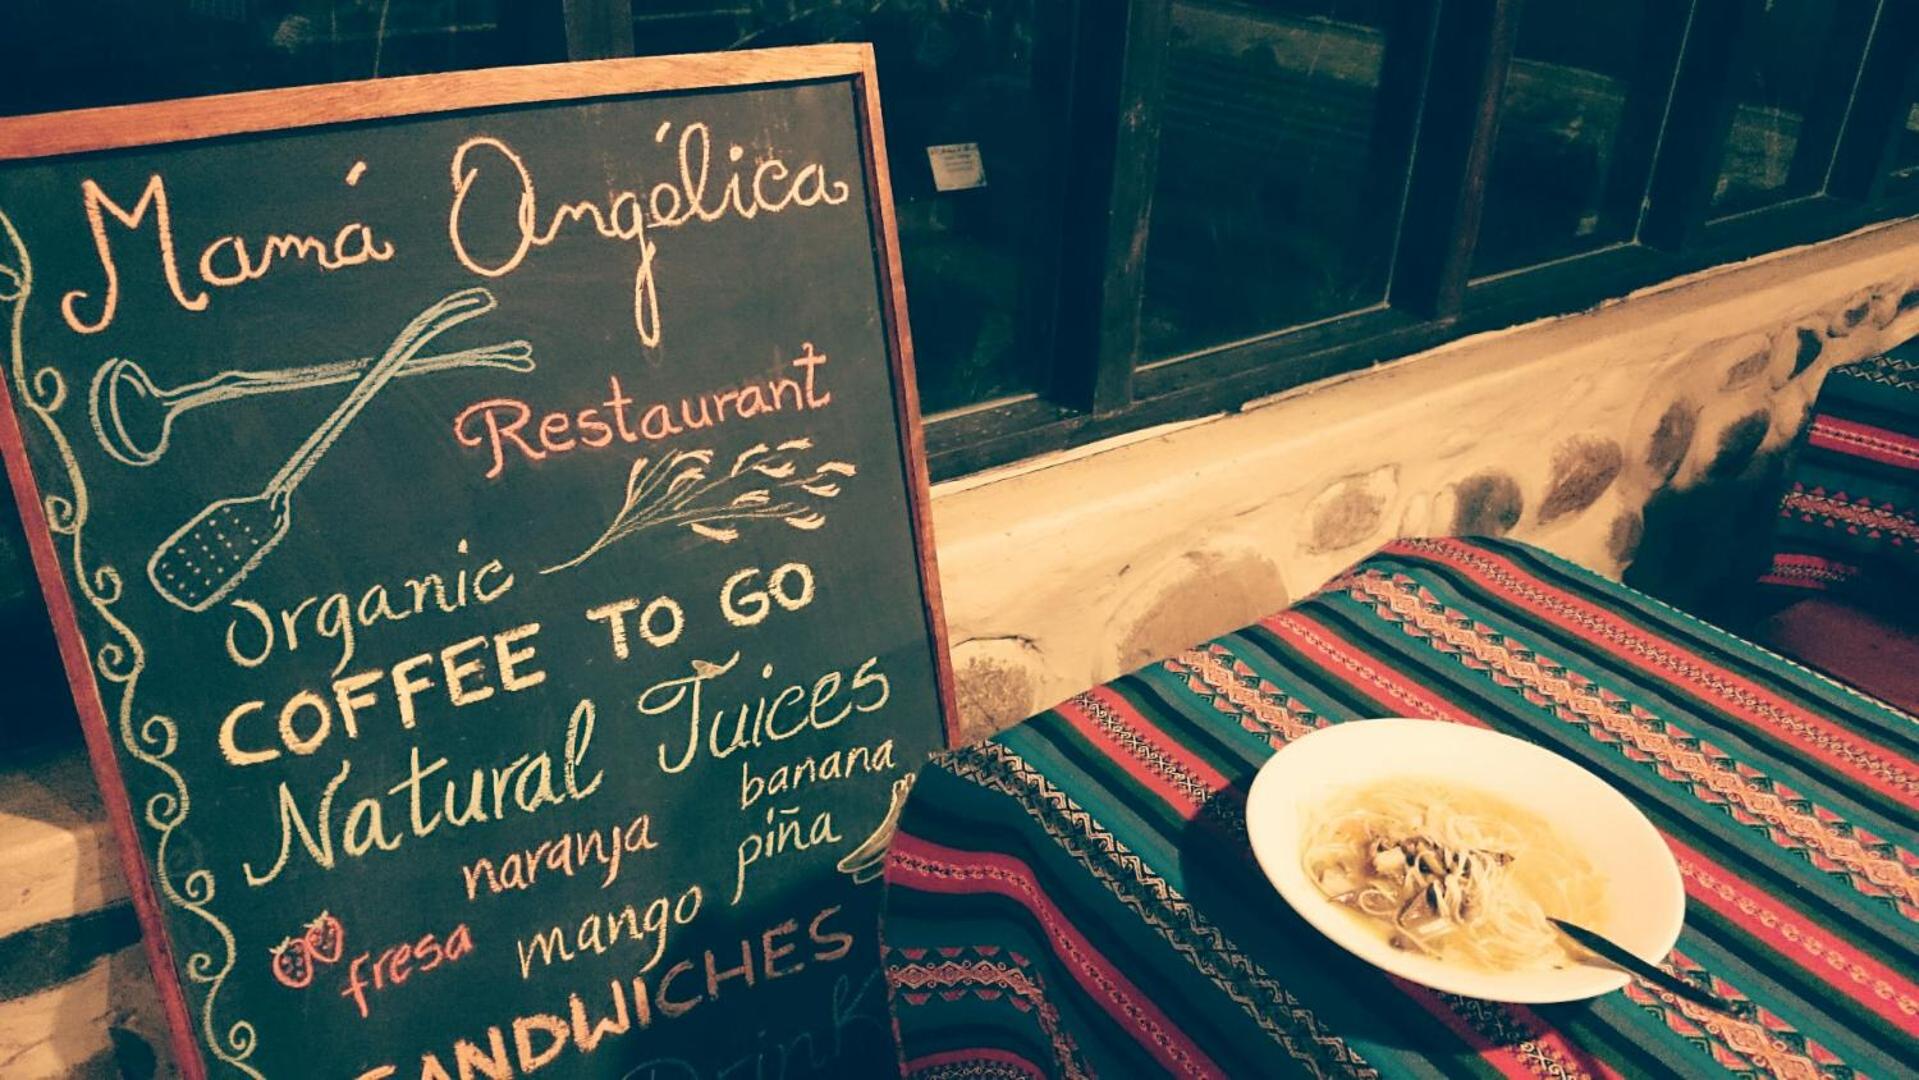 Mamá Angélica
Restaurant
Organic
COFFEE TO GO
Natural Juices
banana
naranja
piña
fresa mango
SANDWICHES
Drink